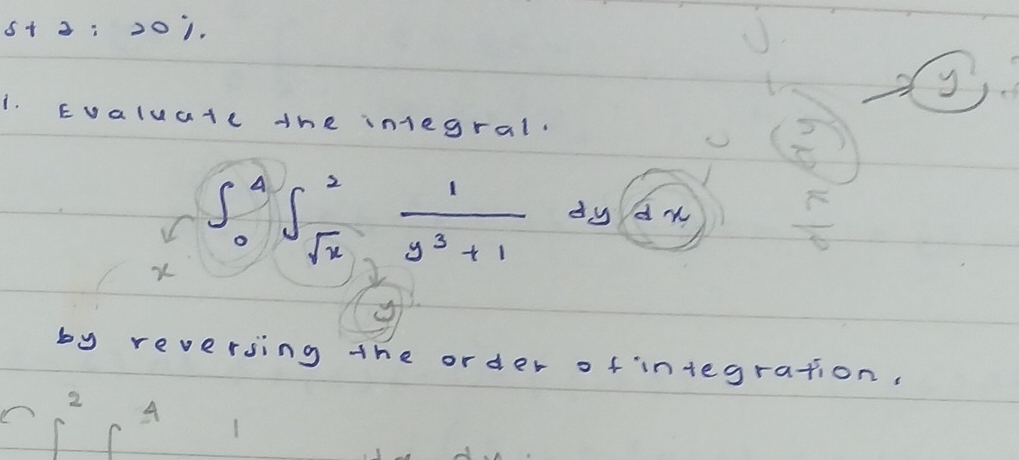 st 2 : 20%.
1. Evaluate the integral.
∫₀⁴ ∫_√x² 1/(y³ + 1) dy dx
x
y
y
by reversing the order of integration.
∫² ∫⁴ 1